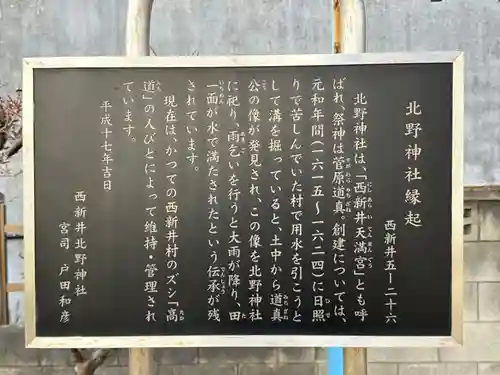 北野神社縁起
西新井五ー二十六
北野神社は、「西新井天満宮」とも呼
ばれ、祭神は菅原道真。創建については、
元和年間(一六一五〜一六二四)に日照
りで苦しんでいた村で用水を引こうと
して溝を掘っていると、土中から道真
公の像が発見され、この像を北野神社
に祀り、雨乞いを行うと大雨が降り、田
一面が水で満たされたという伝承が残
されています。
現在は、かつての西新井村のズシ「高
道」の人びとによって維持・管理され
ています。
平成十七年吉日
西新井北野神社
宮司 戸田和彦